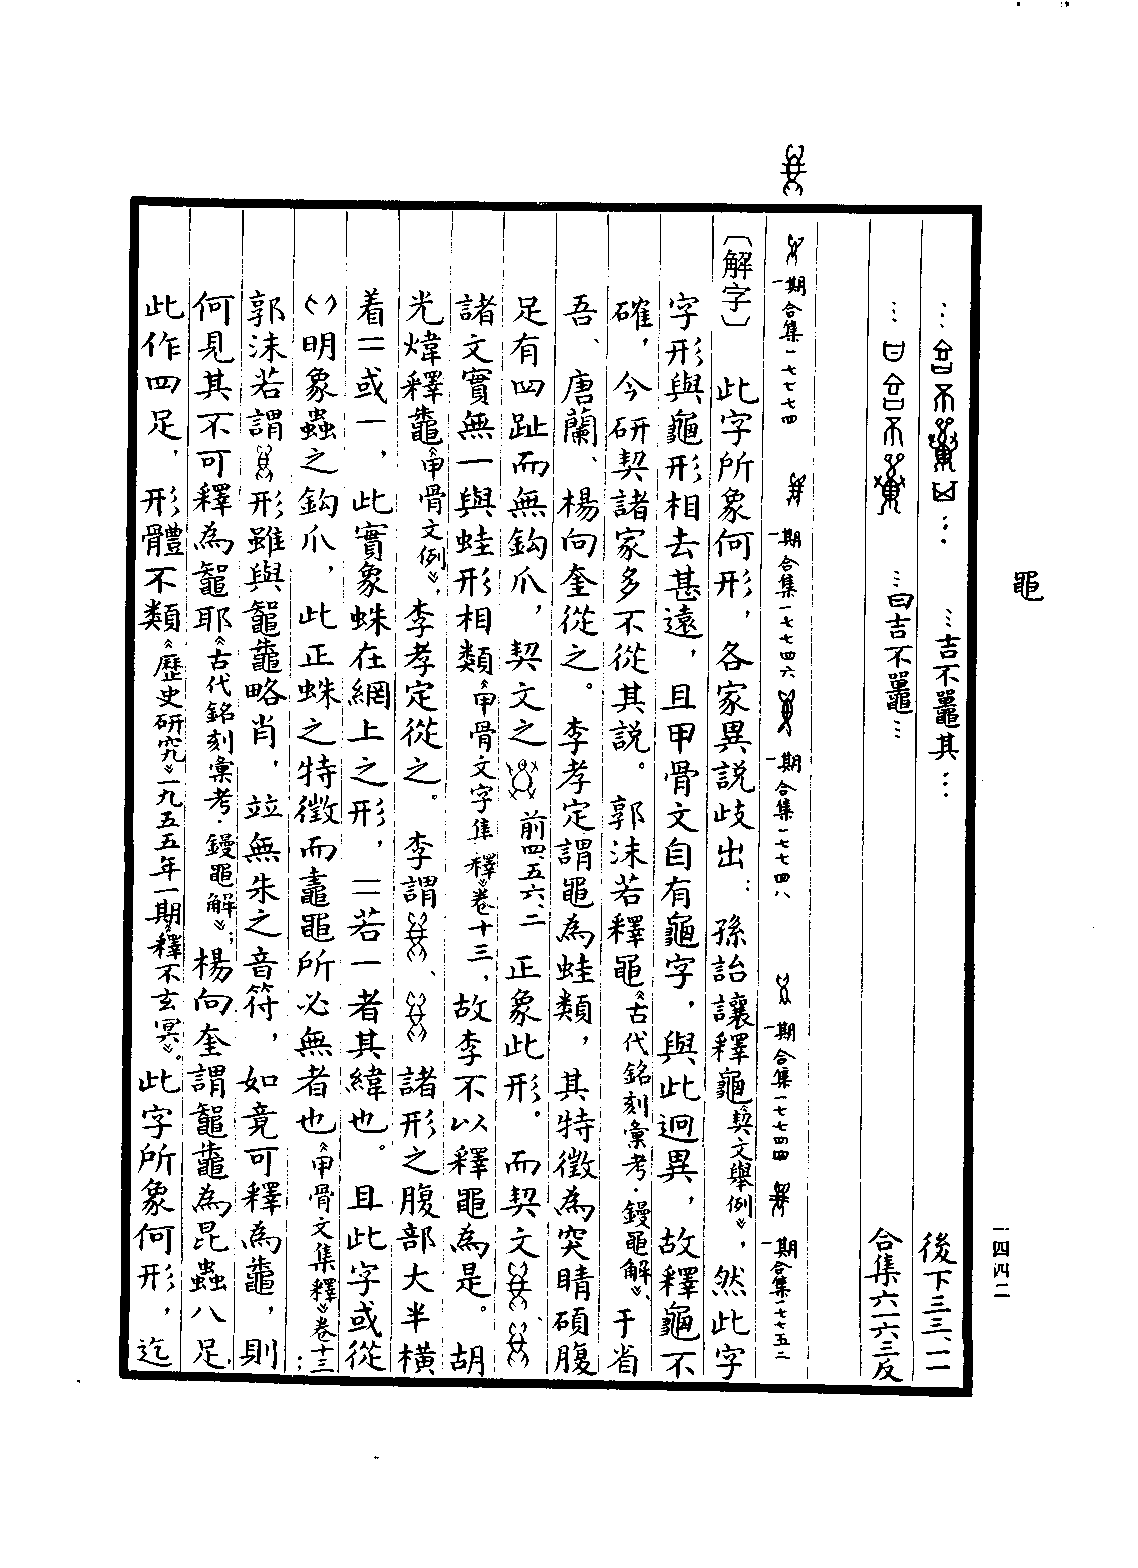 黽
一四四二
…吉不鼉其… 後下三三.一一
…曰吉不鼉… 合集六一六三反
一期 合集一七七四 一期 合集一七七四六 一期 合集一七七四八 一期 合集一七七四四 一期 合集一七七五二
〔解字〕 此字所象何形，各家異說歧出：孫詒讓釋龜《契文舉例》，然此字
字形與龜形相去甚遠，且甲骨文自有龜字，與此迥異，故釋龜不
確，今研契諸家多不從其說。郭沫若釋黽《古代銘刻彙考·鏝黽解》、于省
吾、唐蘭、楊向奎從之。李孝定謂黽為蛙類，其特徵為突睛碩腹
足有四趾而無鈎爪，契文之 前四.五六.二 正象此形。而契文 、
諸文實無一與蛙形相類《甲骨文字集釋》卷十三，故李不以釋黽為是。胡
光煒釋鼄《甲骨文例》，李孝定從之。李謂 、 諸形之腹部大半橫
着二或一，此實象蛛在網上之形，二若一者其緯也。且此字或從
明象蟲之鈎爪，此正蛛之特徵而鼃黽所必無者也《甲骨文集釋》卷十三；
郭沫若謂 形雖與鼅鼄略肖，竝無朱之音符，如竟可釋為鼄，則
何見其不可釋為鼅耶《古代銘刻彙考·鏝黽解》；楊向奎謂鼅鼄為昆蟲八足，
此作四足，形體不類《歷史研究》一九五五年一期《釋不玄冥》。此字所象何形，迄